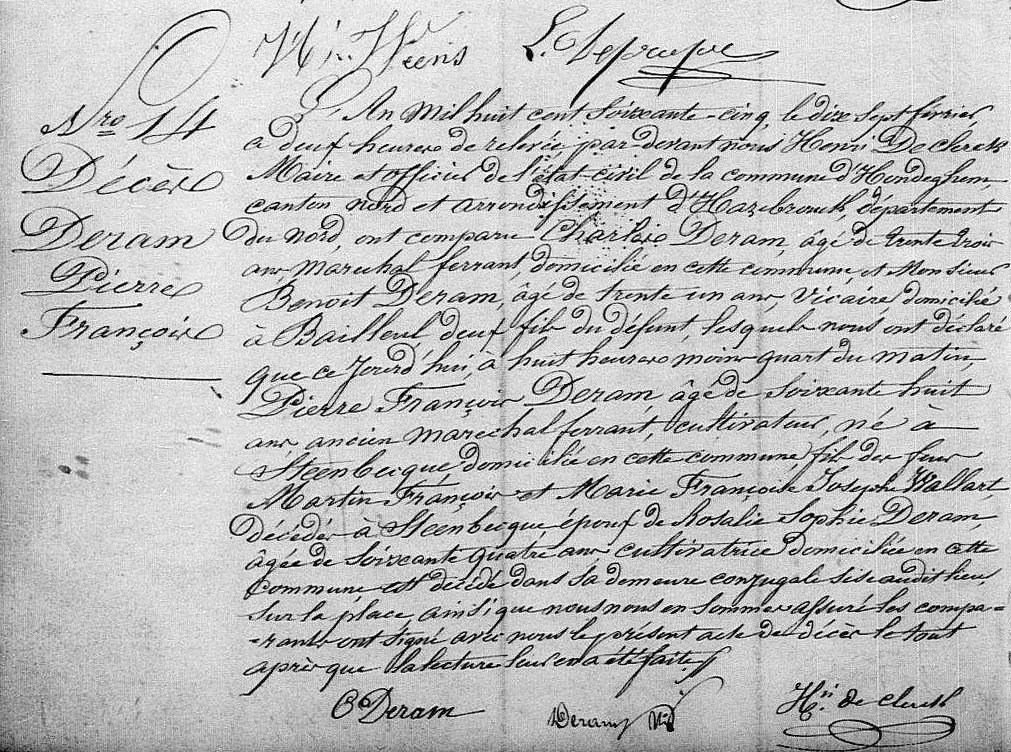 Nro 14
Décès
Deram
Pierre
François
L'An mil huit cent soixante-cinq, le dix sept février
a deux heures de relevée par devant nous Henri De clerck
Maire et officier de l'état civil de la commune d'Hondeghem,
canton nord et arrondissement d'Hazebrouck, département
du Nord, ont comparu Charles Deram, âgé de trente trois
ans, marechal ferrant, domicilié en cette commune et Monsieur
Benoit Deram, âgé de trente un ans, vicaire domicilié
à Bailleul deux fils du défunt, lesquels nous ont déclaré
que ce jourd'hui, à huit heures moins quart du matin,
Pierre François Deram âgé de soixante huit
ans, ancien marechal ferrant, cultivateur, né à
Steenbecque domicilié en cette commune, fils des feus
Martin François et Marie Françoise Joseph Wallart,
décédés à Steenbecque époux de Rosalie Sophie Deram,
âgée de soixante quatre ans cultivatrice domiciliée en cette
commune est décédé dans sa demeure conjugale sise audit lieu,
sur la place, ainsi que nous nous en sommes assuré les compa-
-rants ont signé avec nous le présent acte de décès le tout
après que la lecture leur en a été faite.
C Deram
Deram
Hri de clerck